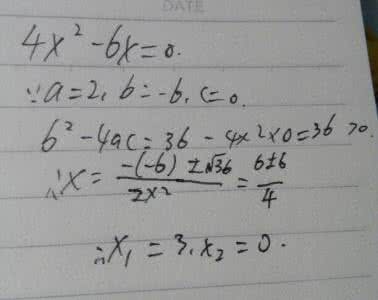 DATE
4x² -6x=0.
∵a=2, b=-6, c=0.
b²-4ac=36-4×2×0=36>0.
∴x= (-(-6)±√36)/(2×2) = (6±6)/4
∴x₁=3, x₂=0.